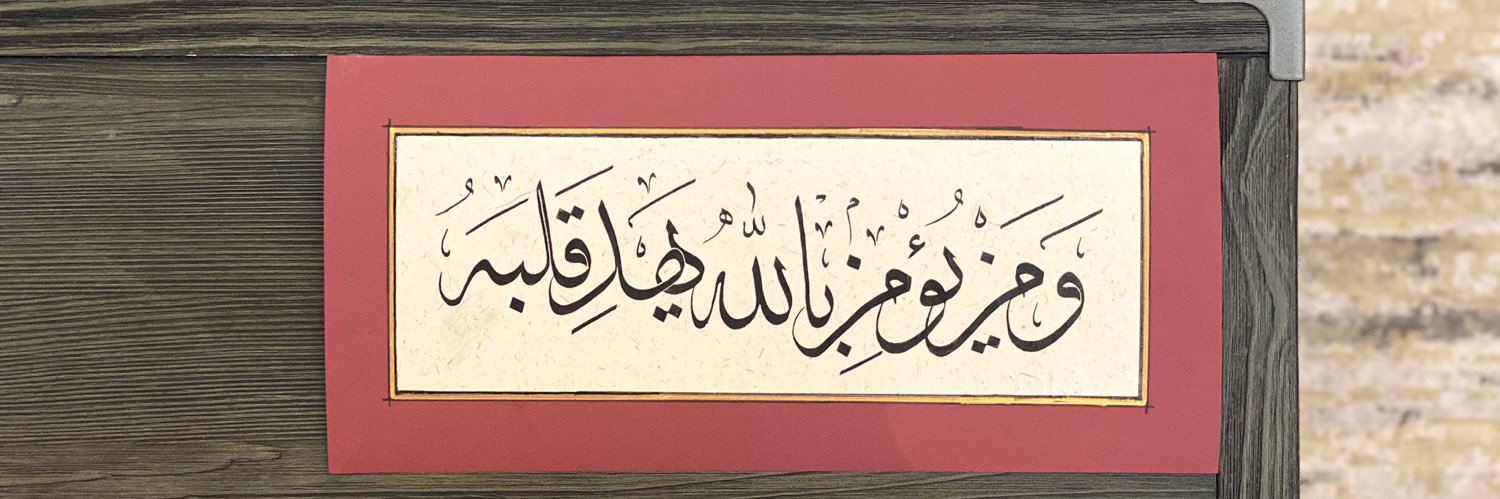 وَمَنْ يُؤْمِنْ بِاللهِ يَهْدِ قَلْبَهُ